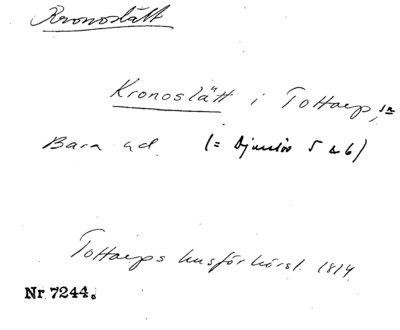 Kronoslätt
Kronoslätt i Tottarp, sn
Bara hd. (= Djurslöv 5 & 6)
Tottarps husförhörsl. 1814
Nr 7244.